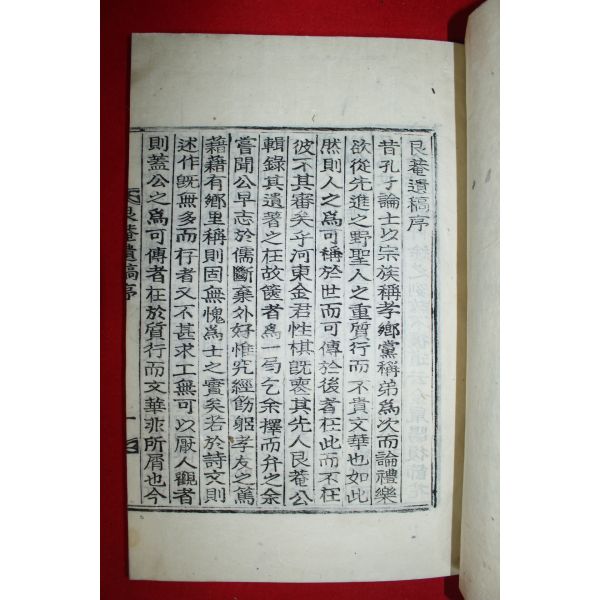 艮菴遺稿序
昔孔子論士以宗族稱孝鄉黨稱弟爲次而論禮樂
欲從先進之野聖人之重質行而不貴文華也如此
然則人之爲可稱於世而可傳於後者在此而不在
彼不其審矣乎河東金君性棋旣裒其先人艮菴公
輯錄其遺著之在故篋者爲一局乞余擇而弁之余
嘗聞公早志於儒斷棄外好惟究經飭躬孝友之篤
藉藉有鄉里稱則固無愧爲士之實矣若於詩文則
述作旣無多而存者又不甚求工無可以厭人觀者
則蓋公之爲可傳者在於質行而文華非所屑也今
艮菴遺稿序
一